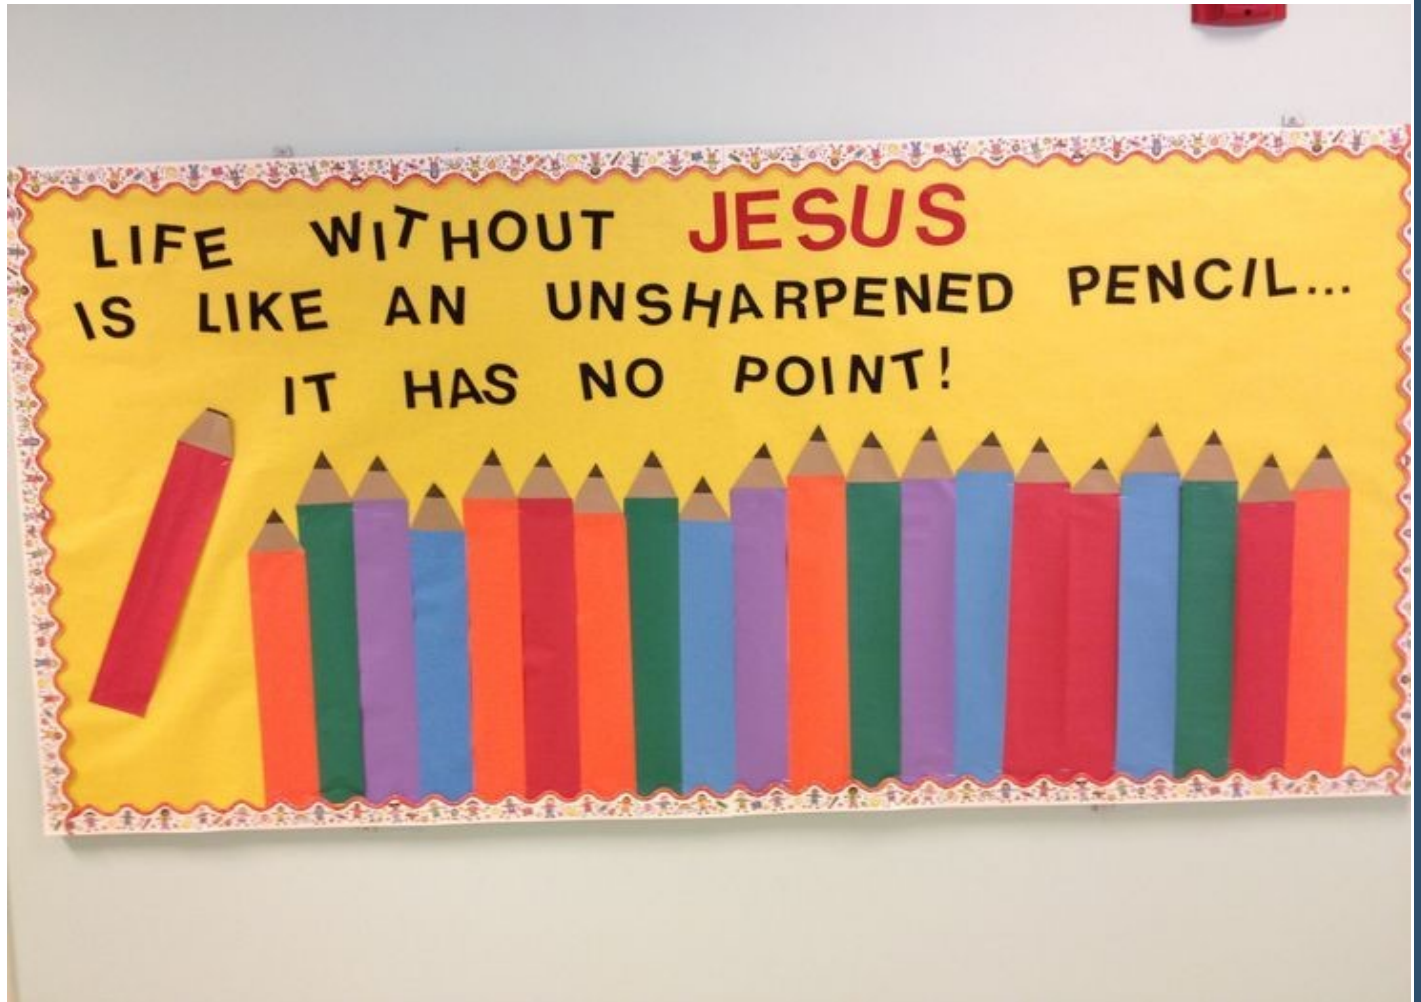 LIFE WITHOUT JESUS
IS LIKE AN UNSHARPENED PENCIL...
IT HAS NO POINT!